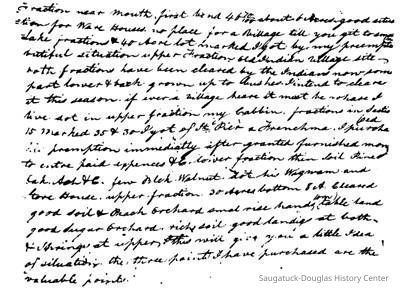 Fraction near mouth, first bend 46 to about 6 Acres good situa
tion for Ware Houses. no place for a village till you get to
Lake fractions & 40 Acre lot marked I got by my preempt
butiful situation upper Fraction old Indian village site
both fractions have been cleared by the Indians now some
part lower & back grown up to bushes I intend to clear
it this season. if ever a village hear it must be whare I
live dot in upper fraction my Cabbin. fractions in Section
15 marked 35 & 30 I got of St. Pier a Frenchman. I purcha
sed
preemption immediately after granted furnished mony
to entre paid expences &c. lower fraction thin soil Pine
Oak. Ash &c. few Blck Walnut. dot his Wigwam and
Store House. upper fraction 30 Acres bottom 8 A. Cleared
good soil & Peach orchard small rise handsome table land
good sugar orchard. rich soil good landing at both
& Springs at upper, this will give you a little Idea
of situation. the three points I have purchased are the
valuable points.
Saugatuck-Douglas History Center